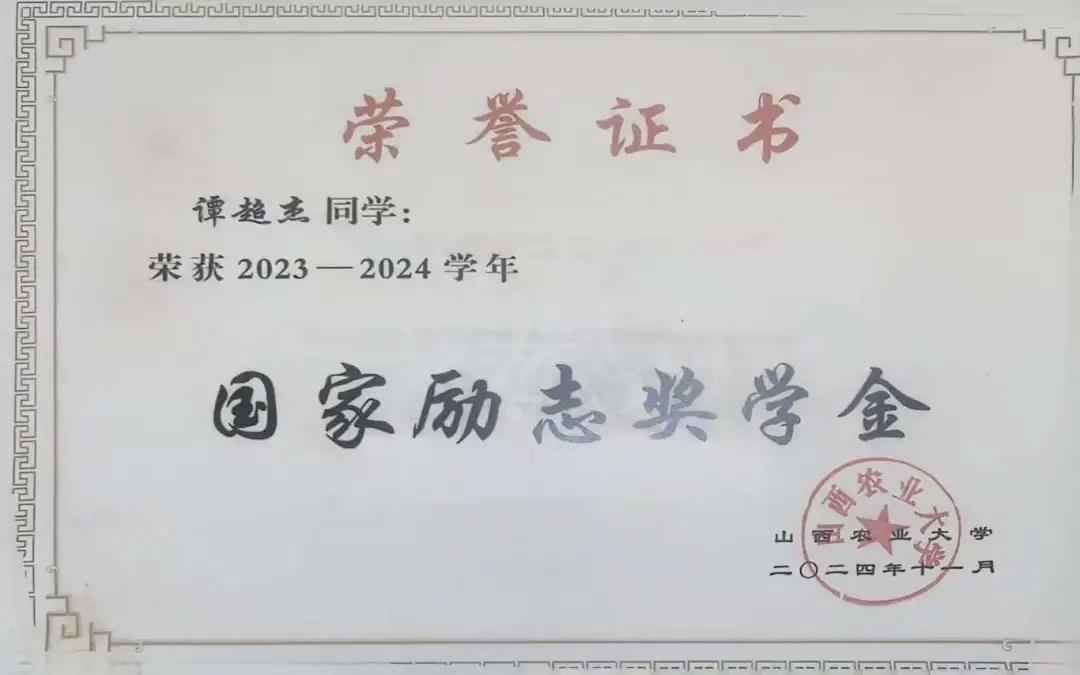 荣誉证书
谭超杰 同学：
荣获 2023—2024 学年
国家励志奖学金
山西农业大学
山西农业大学
二〇二四年十一月